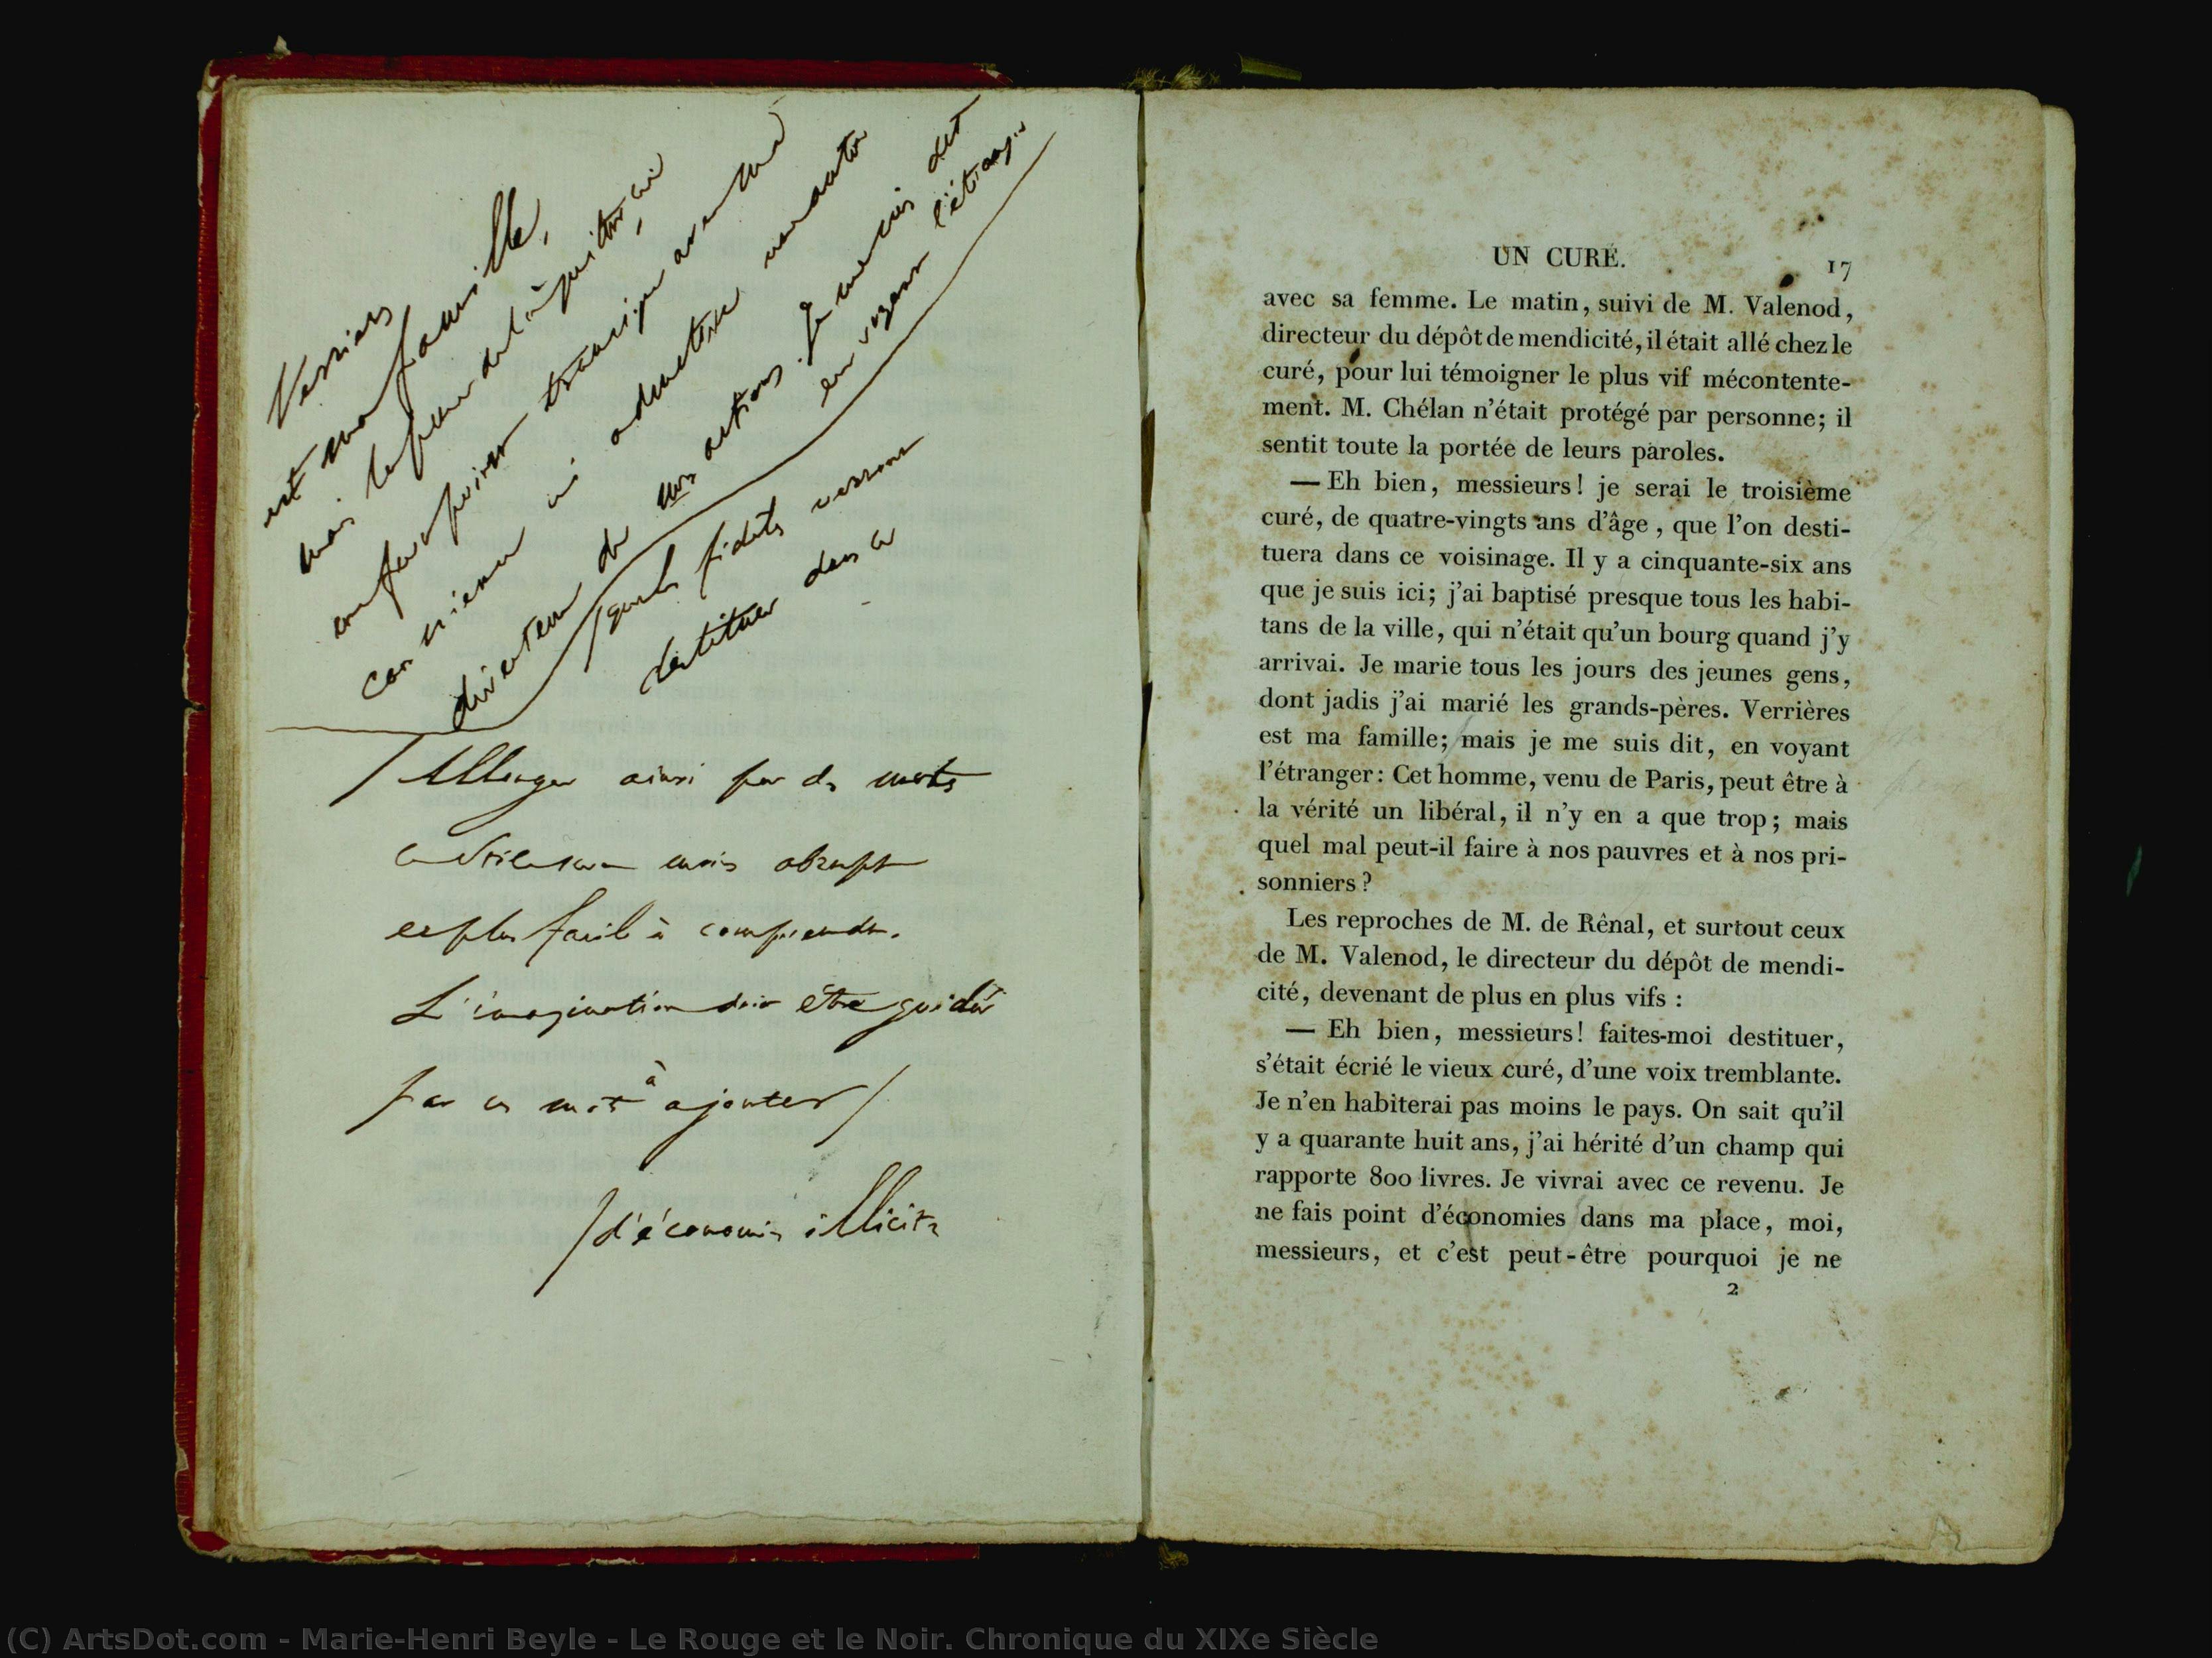 Verrières
est ma famille,
mais la peur de la quitter, ai
ne fera point transiger avec ma
conscience ni admettre un autre
directeur de mes actions. Je me suis dit
en voyant l'étranger
que les fidèles verront
destituer dans ce
Allonger ainsi par des mots
le style mais abrupt
est plus facile à comprendre.
L'imagination doit être guidée
par ces mots à ajouter
d'économies illicites
UN CURÉ.
17
avec sa femme. Le matin, suivi de M. Valenod,
directeur du dépôt de mendicité, il était allé chez le
curé, pour lui témoigner le plus vif mécontente-
ment. M. Chélan n'était protégé par personne; il
sentit toute la portée de leurs paroles.
— Eh bien, messieurs! je serai le troisième
curé, de quatre-vingts ans d'âge, que l'on desti-
tuera dans ce voisinage. Il y a cinquante-six ans
que je suis ici; j'ai baptisé presque tous les habi-
tans de la ville, qui n'était qu'un bourg quand j'y
arrivai. Je marie tous les jours des jeunes gens,
dont jadis j'ai marié les grands-pères. Verrières
est ma famille; mais je me suis dit, en voyant
l'étranger: Cet homme, venu de Paris, peut être à
la vérité un libéral, il n'y en a que trop; mais
quel mal peut-il faire à nos pauvres et à nos pri-
sonniers?
Les reproches de M. de Rênal, et surtout ceux
de M. Valenod, le directeur du dépôt de mendi-
cité, devenant de plus en plus vifs :
— Eh bien, messieurs! faites-moi destituer,
s'était écrié le vieux curé, d'une voix tremblante.
Je n'en habiterai pas moins le pays. On sait qu'il
y a quarante huit ans, j'ai hérité d'un champ qui
rapporte 800 livres. Je vivrai avec ce revenu. Je
ne fais point d'économies dans ma place, moi,
messieurs, et c'est peut-être pourquoi je ne
2
(C) ArtsDot.com - Marie-Henri Beyle - Le Rouge et le Noir. Chronique du XIXe Siècle